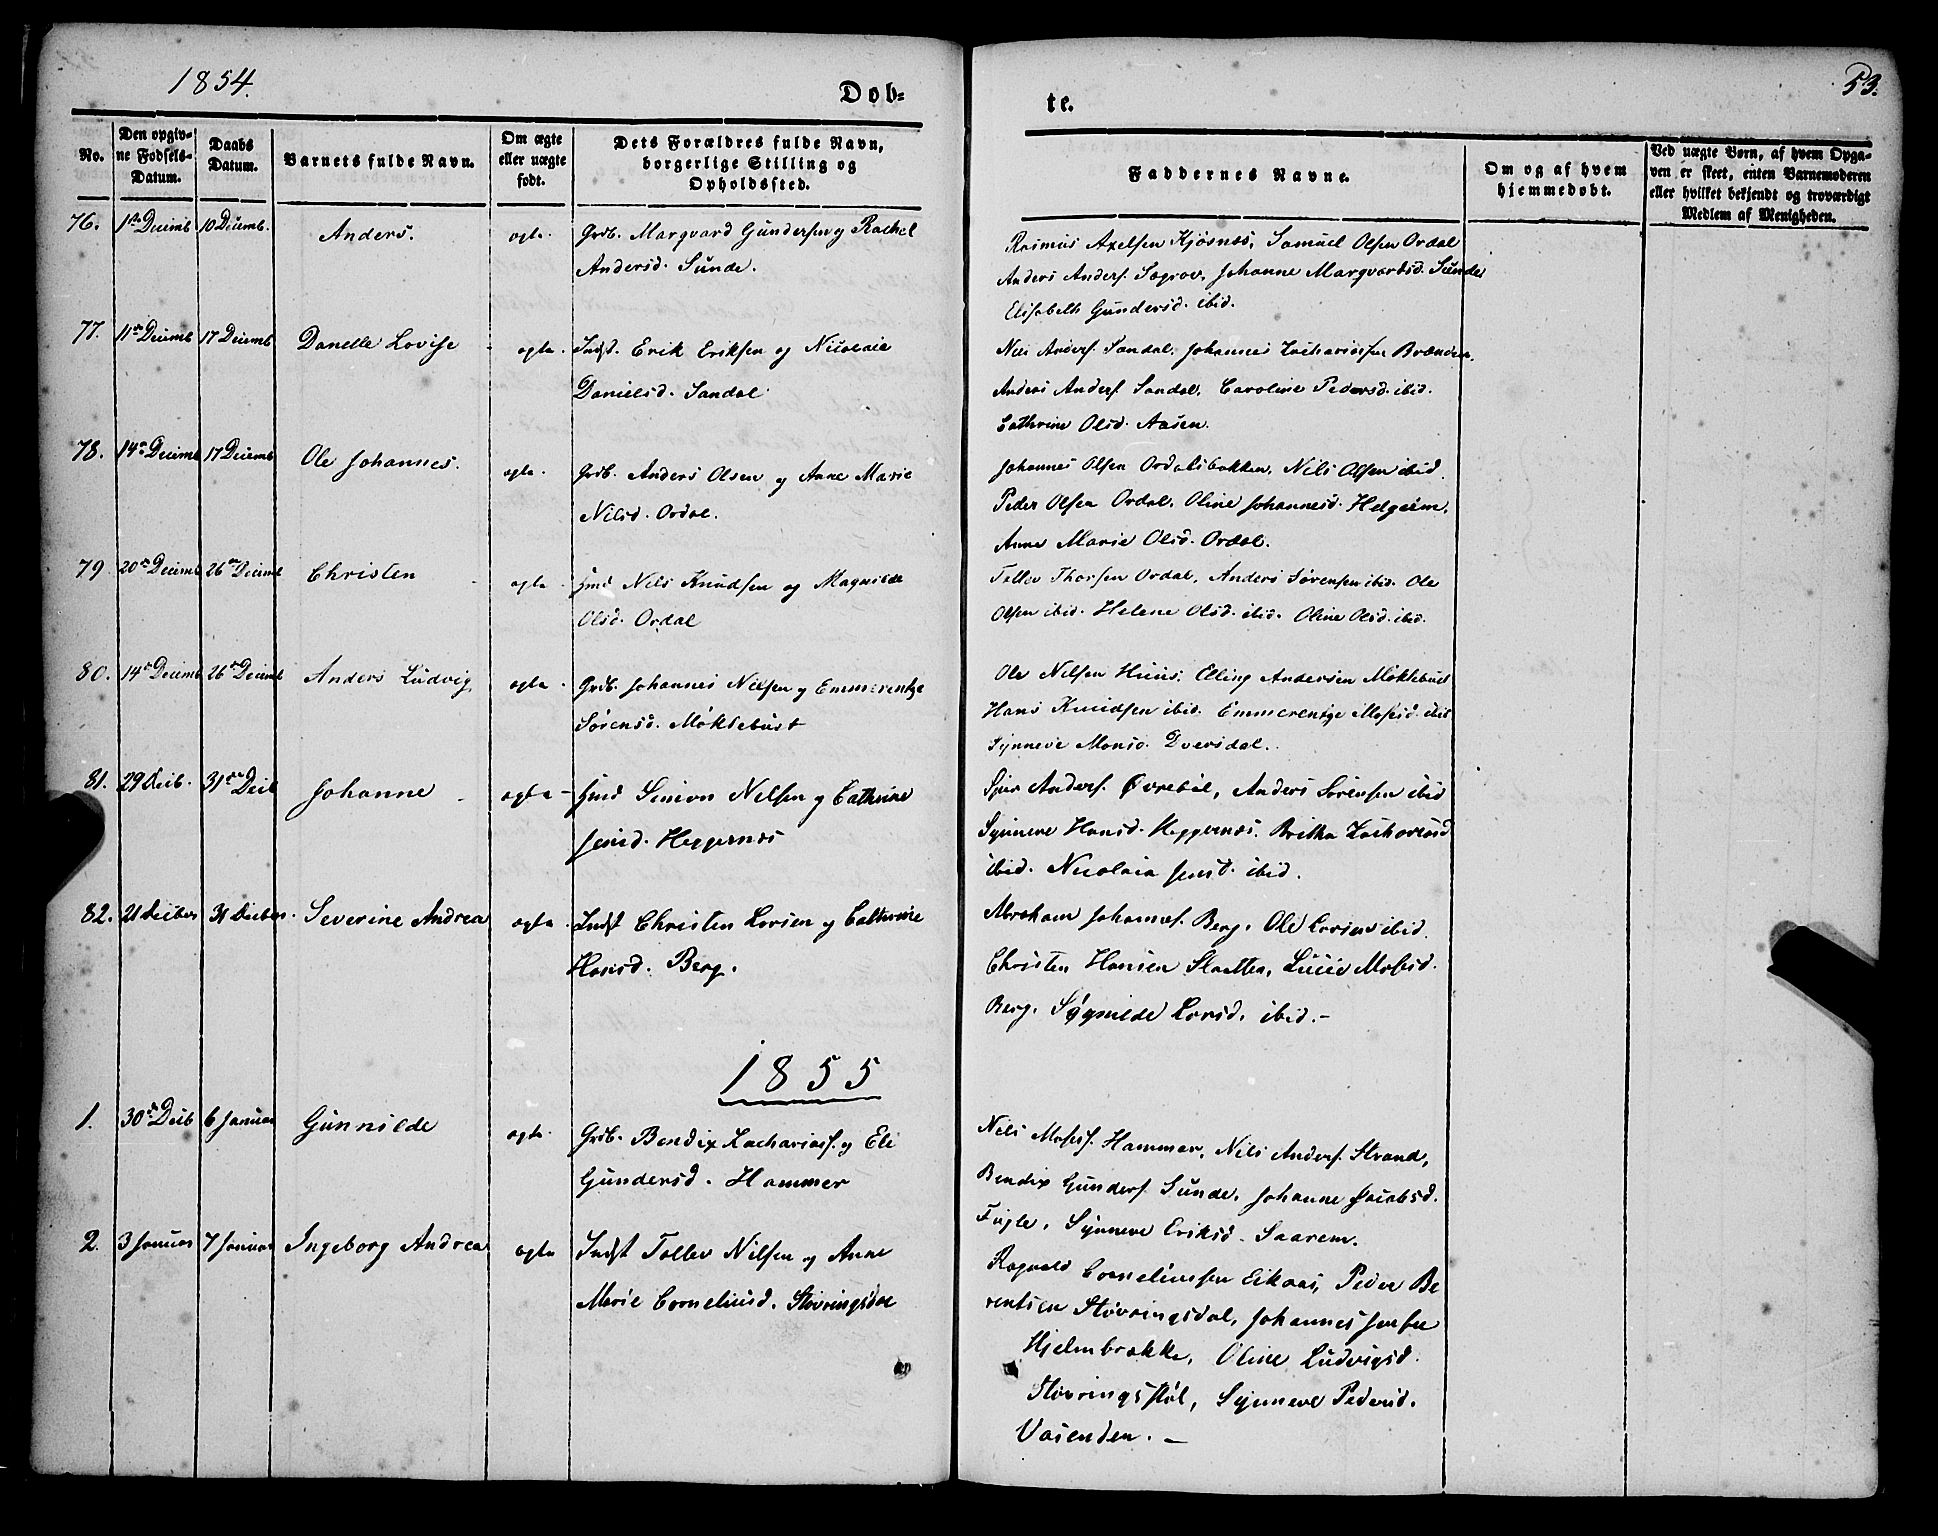 1854.
Døb-
te.
53.
No.
Den opgiv-
ne Fødsels-
Datum.
Daabs
Datum.
Barnets fulde Navn.
Om ægte
eller uægte
født.
Dets Forældres fulde Navn,
borgerlige Stilling og
Opholdssted.
Faddernes Navne.
Om og af hvem
hjemmedøbt.
Ved uægte Børn, af hvem Opga-
ven er skeet, enten Barnemoderen
eller hvilket bekjendt og troværdigt
Medlem af Menigheden.
76. 1ste Decemb 10 Decemb. Anders. ægte. Grdb. Marqvard Gundersen og Rachel
Andersd. Sunde.
Rasmus Axelsen Kjøsnæs, Samuel Olsen Ordal
Anders Anders. Søgrov, Johanne Marqvardsd. Sunde
Elisabeth Gundersd. ibid.
77. 11te Decemb 17 Decemb Danelle Lovise ægte. Indst. Erik Eriksen og Nicolaie
Danielsd. Sandal
Nils Anders. Sandal, Johannes Zachariassen Brænden.
Anders Anders. Sandal, Caroline Pedersd. ibid.
Cathrine Olsd. Aasen.
78. 14de Decemb 17 Decemb Ole Johannes. ægte. Grdb. Anders Olsen og Anne Marie
Nilsd. Ordal.
Johannes Olsen Ordalsbakken, Nils Olsen ibid.
Peder Olsen Ordal, Oline Johannesd. Helgeim,
Anne Marie Olsd. Ordal.
79. 20de Decemb 26de Decemb Christen ægte. Hmd Nils Knudsen og Magnilde
Olsd. Ordal
Tollev Thorsen Ordal, Anders Sørensen ibid. Ole
Olsen ibid. Helene Olsd. ibid. Oline Olsd. ibid.
80. 14de Decemb 26de Decemb Anders Ludvig ægte. Grdb. Johannes Nilsen og Emmerentze
Sørensd. Møklebust
Ole Nilsen Huus, Elling Andersen Møklebust
Hans Knudsen ibid. Emmerentze Mosesd. ibid
Synneve Monsd. Dversdal.
81. 29 Decb. 31te Decb Johanne ægte Hmd Simon Nilsen og Cathrine
Jensd. Heggernæs
Sjur Anders. Øvrebøe, Anders Sørensen ibid
Synneve Hansd. Heggernæs, Britha Zachariasd
ibid. Nicolaia Jensd. ibid.
82. 21 Decbes 31 Decber. Severine Andrea ægte. Indst Christen Larsen og Cathrine
Hansd. Berg.
Abraham Johannes. Berg, Ole Larsen ibid.
Christen Hansen Slaatten, Lucie Mosesd.
Berg, Søgnilde Larsd. ibid.-
1855
1. 30te Decb 6 Januar Gunnilde ægte. Grdb. Bendix Zachariass. og Eli
Gundersd. Hammer
Nils Moses. Hammer, Nils Anders. Strand,
Bendix Gunders. Sunde, Johanne Jacobsd.
Fugle, Synneve Eriksd. Saarem.
2. 3 Januar 7 Januar Ingeborg Andrea ægte Indst Tollev Nilsen og Anne
Marie Corneliusd. Støvringsdal
Ragvald Corneliussen Eikaas, Peder Be
rentsen Støvringsdal, Johannes Jensen
Hjelmbrække, Oline Ludvigsd.
Støvringsstøl, Synneve Pedersd.
Vasenden. -